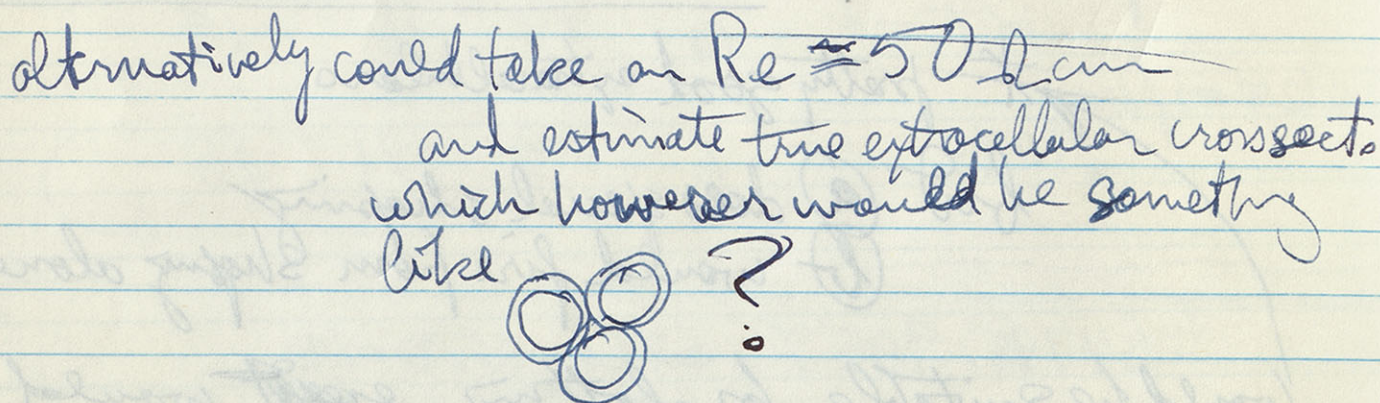 alternatively could take an Re ≅ 50 Ω cm
and estimate true extracellular crosssect.
which however would be something
like ?